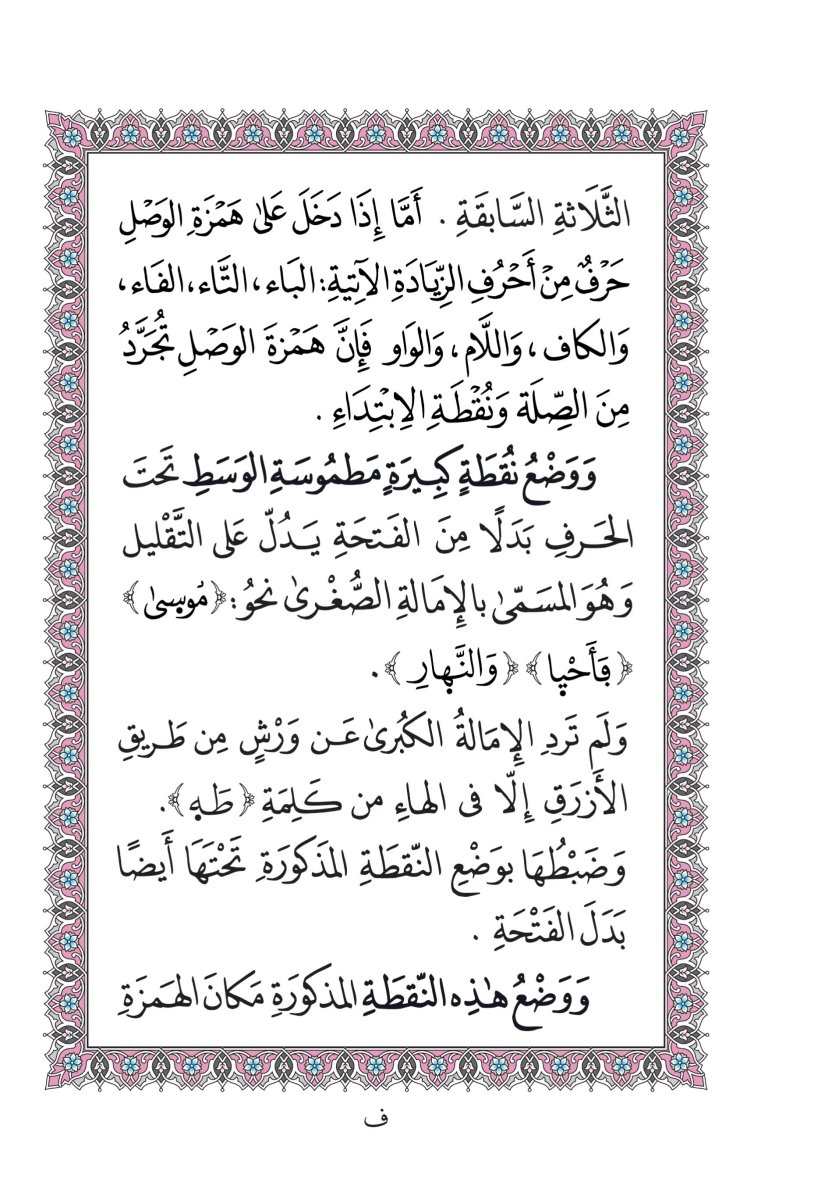 الثَّلَاثةِ السَّابقَةِ . أَمَّا إِذَا دَخَلَ عَلىٰ هَمْزَةِ الوَصْلِ
حَرْفٌ مِنْ أَحْرُفِ الزِّيَادَةِ الآتِيةِ: البَاء، التَّاء، الفَاء،
وَالكاف، وَاللَّام، وَالوَاو فَإِنَّ هَمْزةَ الوَصْلِ تُجَرَّدُ
مِنَ الصِّلَة وَنُقْطَةِ الِابْتِدَاءِ .
وَوَضْعُ نُقُطَةٍ كَبِيرَةٍ مَطمُوسَةِ الوَسَطِ تَحَتَ
الحَرفِ بَدَلًا مِنَ الفَتحَةِ يَدُلّ عَلى التَّقْلِيل
وَهُوَ المسَمّىٰ بالإِمَالةِ الصُّغْرىٰ نحوُ: ﴿مُوسىٰ﴾
﴿فَأَحْيا﴾ ﴿وَالنَّهارِ﴾.
وَلَم تَردِ الإِمَالةُ الكبُرىٰ عَن وَرْشٍ مِن طَريقِ
الأَزرَقِ إِلّا فى الهاءِ من كَلِمَةِ ﴿طَه﴾.
وَضَبْطُهَا بوَضْعِ النّقطَةِ المذكورَةِ تَحْتَهَا أَيضًا
بَدَلَ الفَتْحَةِ .
وَوَضْعُ هٰذِه النّقطَةِ المذكورَةِ مَكانَ الهَمزَةِ
ف